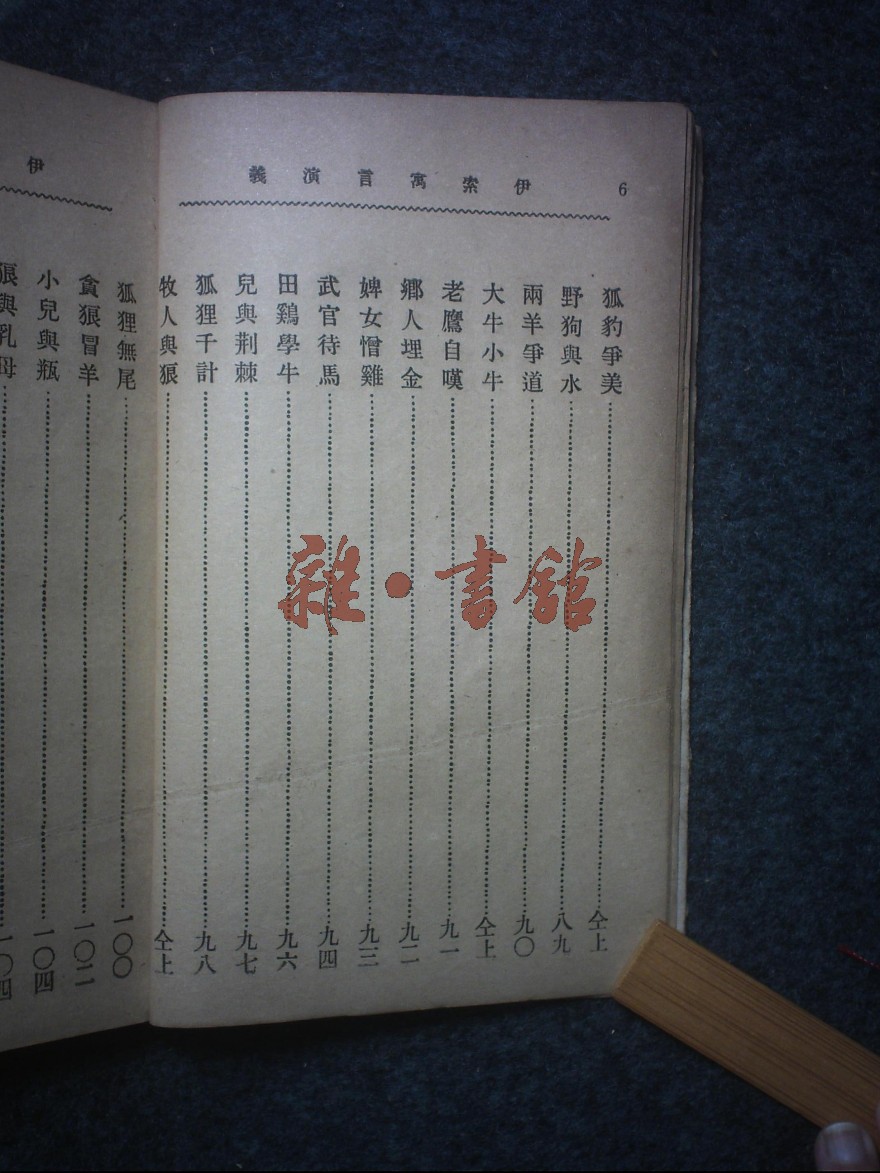 伊索寓言演義 6
狐豹爭美……仝上
野狗與水……八九
兩羊爭道……九〇
大牛小牛……仝上
老鷹自嘆……九一
鄉人埋金……九二
婢女憎雞……九三
武官待馬……九四
田鷄學牛……九六
兒與荆棘……九七
狐狸千計……九八
牧人與狼……仝上
伊
狐狸無尾……一〇〇
貪狼冒羊……一〇二
小兒與瓶……一〇四
狼與乳母……一〇四
雜·書館